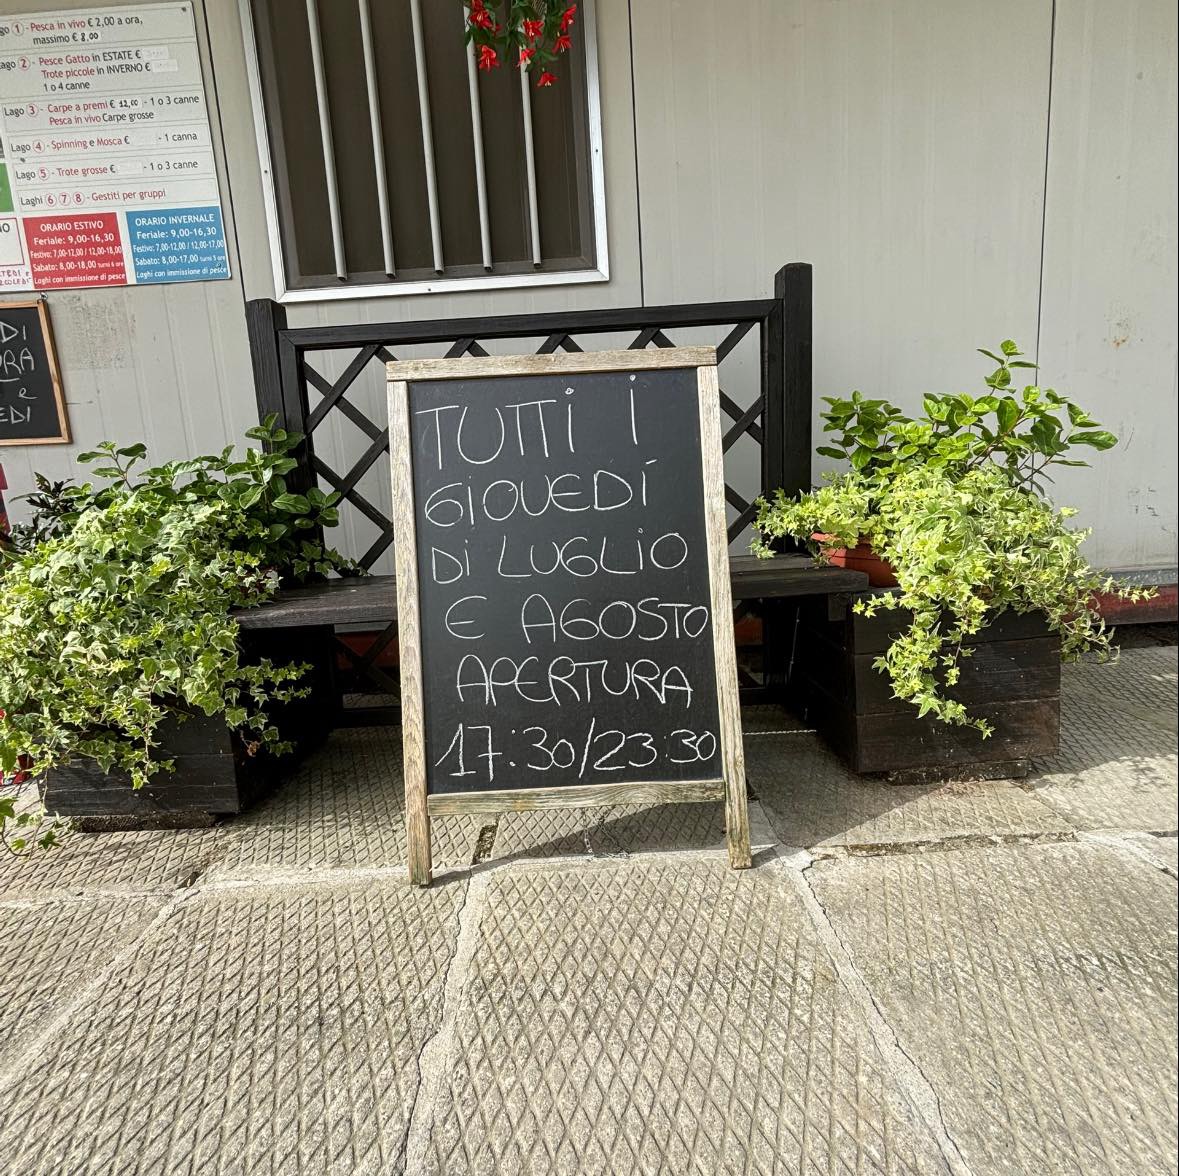 ① - Pesca in vivo € 2,00 a ora,
massimo € 8,00
② - Pesce Gatto in ESTATE €
Trote piccole in INVERNO €
1 o 4 canne
Lago ③ - Carpe a premi € 12,00 - 1 o 3 canne
Pesca in vivo Carpe grosse
Lago ④ - Spinning e Mosca € - 1 canna
Lago ⑤ - Trote grosse € - 1 o 3 canne
Laghi ⑥ ⑦ ⑧ - Gestiti per gruppi
ORARIO ESTIVO
Feriale: 9,00-16,30
Festivo: 7,00-12,00 / 12,00-18,00
Sabato: 8,00-18,00 turni 5 ore
Laghi con immissione di pesce
ORARIO INVERNALE
Feriale: 9,00-16,30
Festivo: 7,00-12,00 / 12,00-17,00
Sabato: 8,00-17,00 turni 5 ore
Laghi con immissione di pesce
DI
ORA
e
EDI
TUTTI I
GIOVEDÌ
DI LUGLIO
E AGOSTO
APERTURA
17:30/23:30